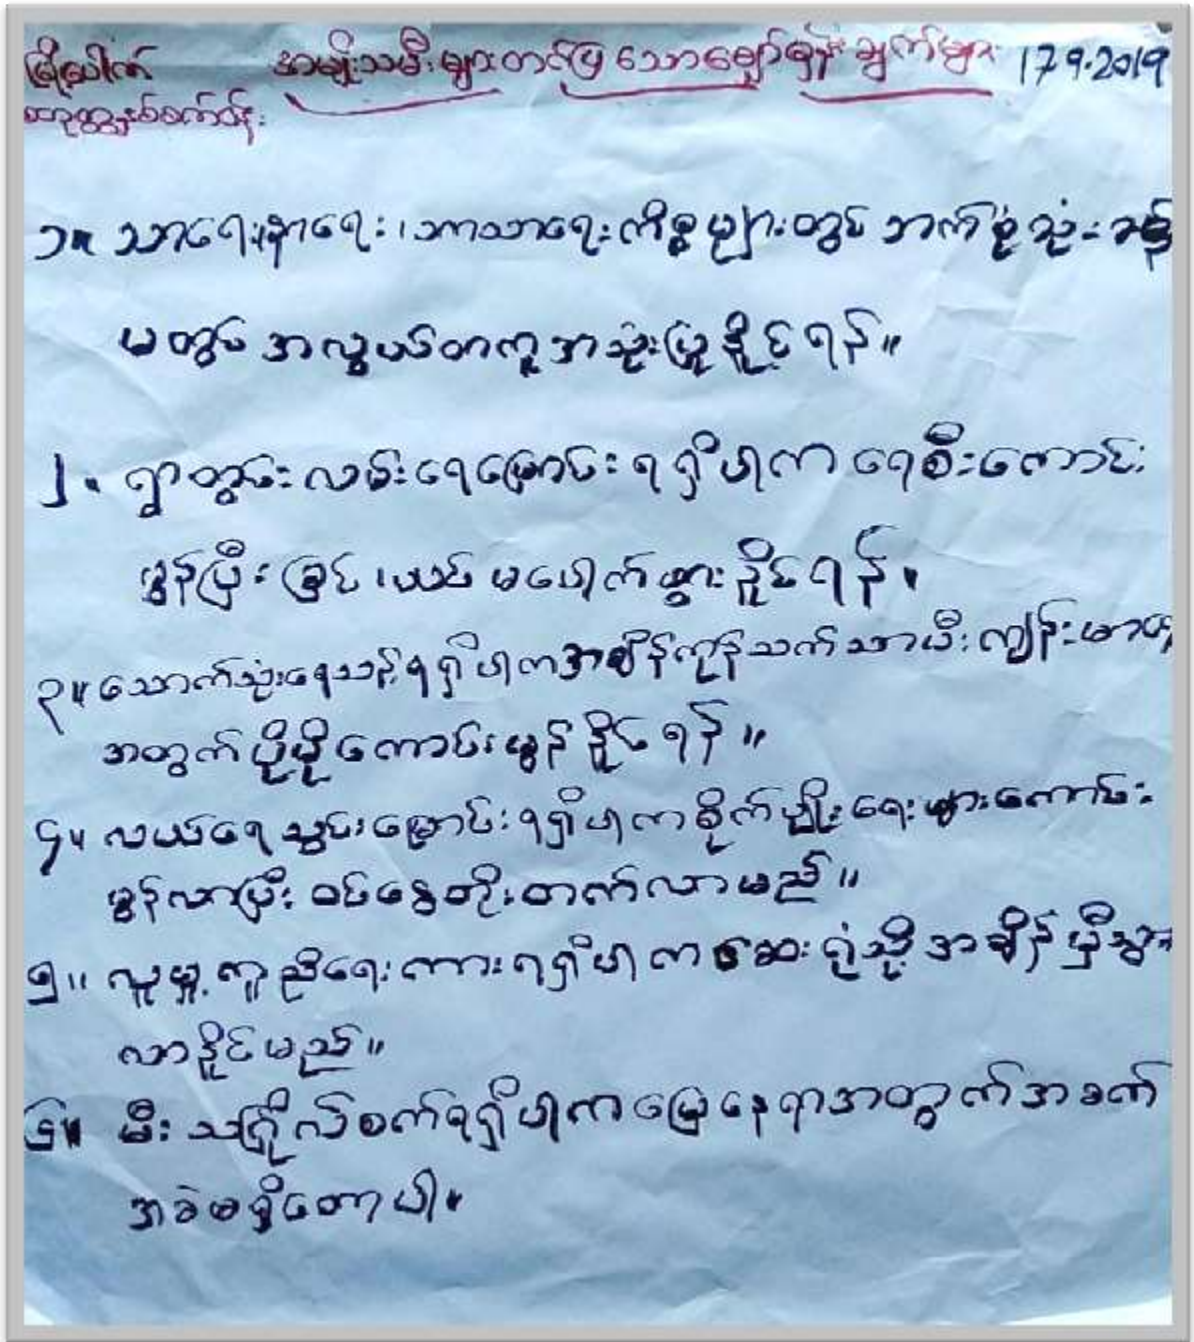 မြို့ပေါက် အမျိုးသမီးများတင်ပြသောမျှော်မှန်းချက်များ 17.9.2019
၁။ သာရေး၊နာရေး၊ဘာသာရေးကိစ္စများတွင် ဘက်စုံသုံးခန်း
မတွင် အလွယ်တကူအသုံးပြုနိုင်ရန်။
၂။ ရွာတွင်းလမ်းရေမြောင်းရရှိပါက ရေစီးကောင်း
မွန်ပြီး ခြင်၊ယင် မပေါက်ဖွားနိုင်ရန်။
၃။ သောက်သုံးရေသန့်ရရှိပါကအချိန်ကုန်သက်သာပီးကျန်းမာရေး
အတွက်ပိုမိုကောင်းမွန်နိုင်ရန်။
၄။ လယ်ရေသွင်းမြောင်းရရှိပါကစိုက်ပျိုးရေးများကောင်း
မွန်လာပြီး ဝင်ငွေတိုးတက်လာမည်။
၅။ လူမှု့ကူညီရေးကားရရှိပါကဆေးရုံသို့အချိန်မှီသွား
လာနိုင်မည်။
၆။ မီးသဂြိုလ်စက်ရရှိပါကမြေနေရာအတွက်အခက်
အခဲမရှိတော့ပါ။